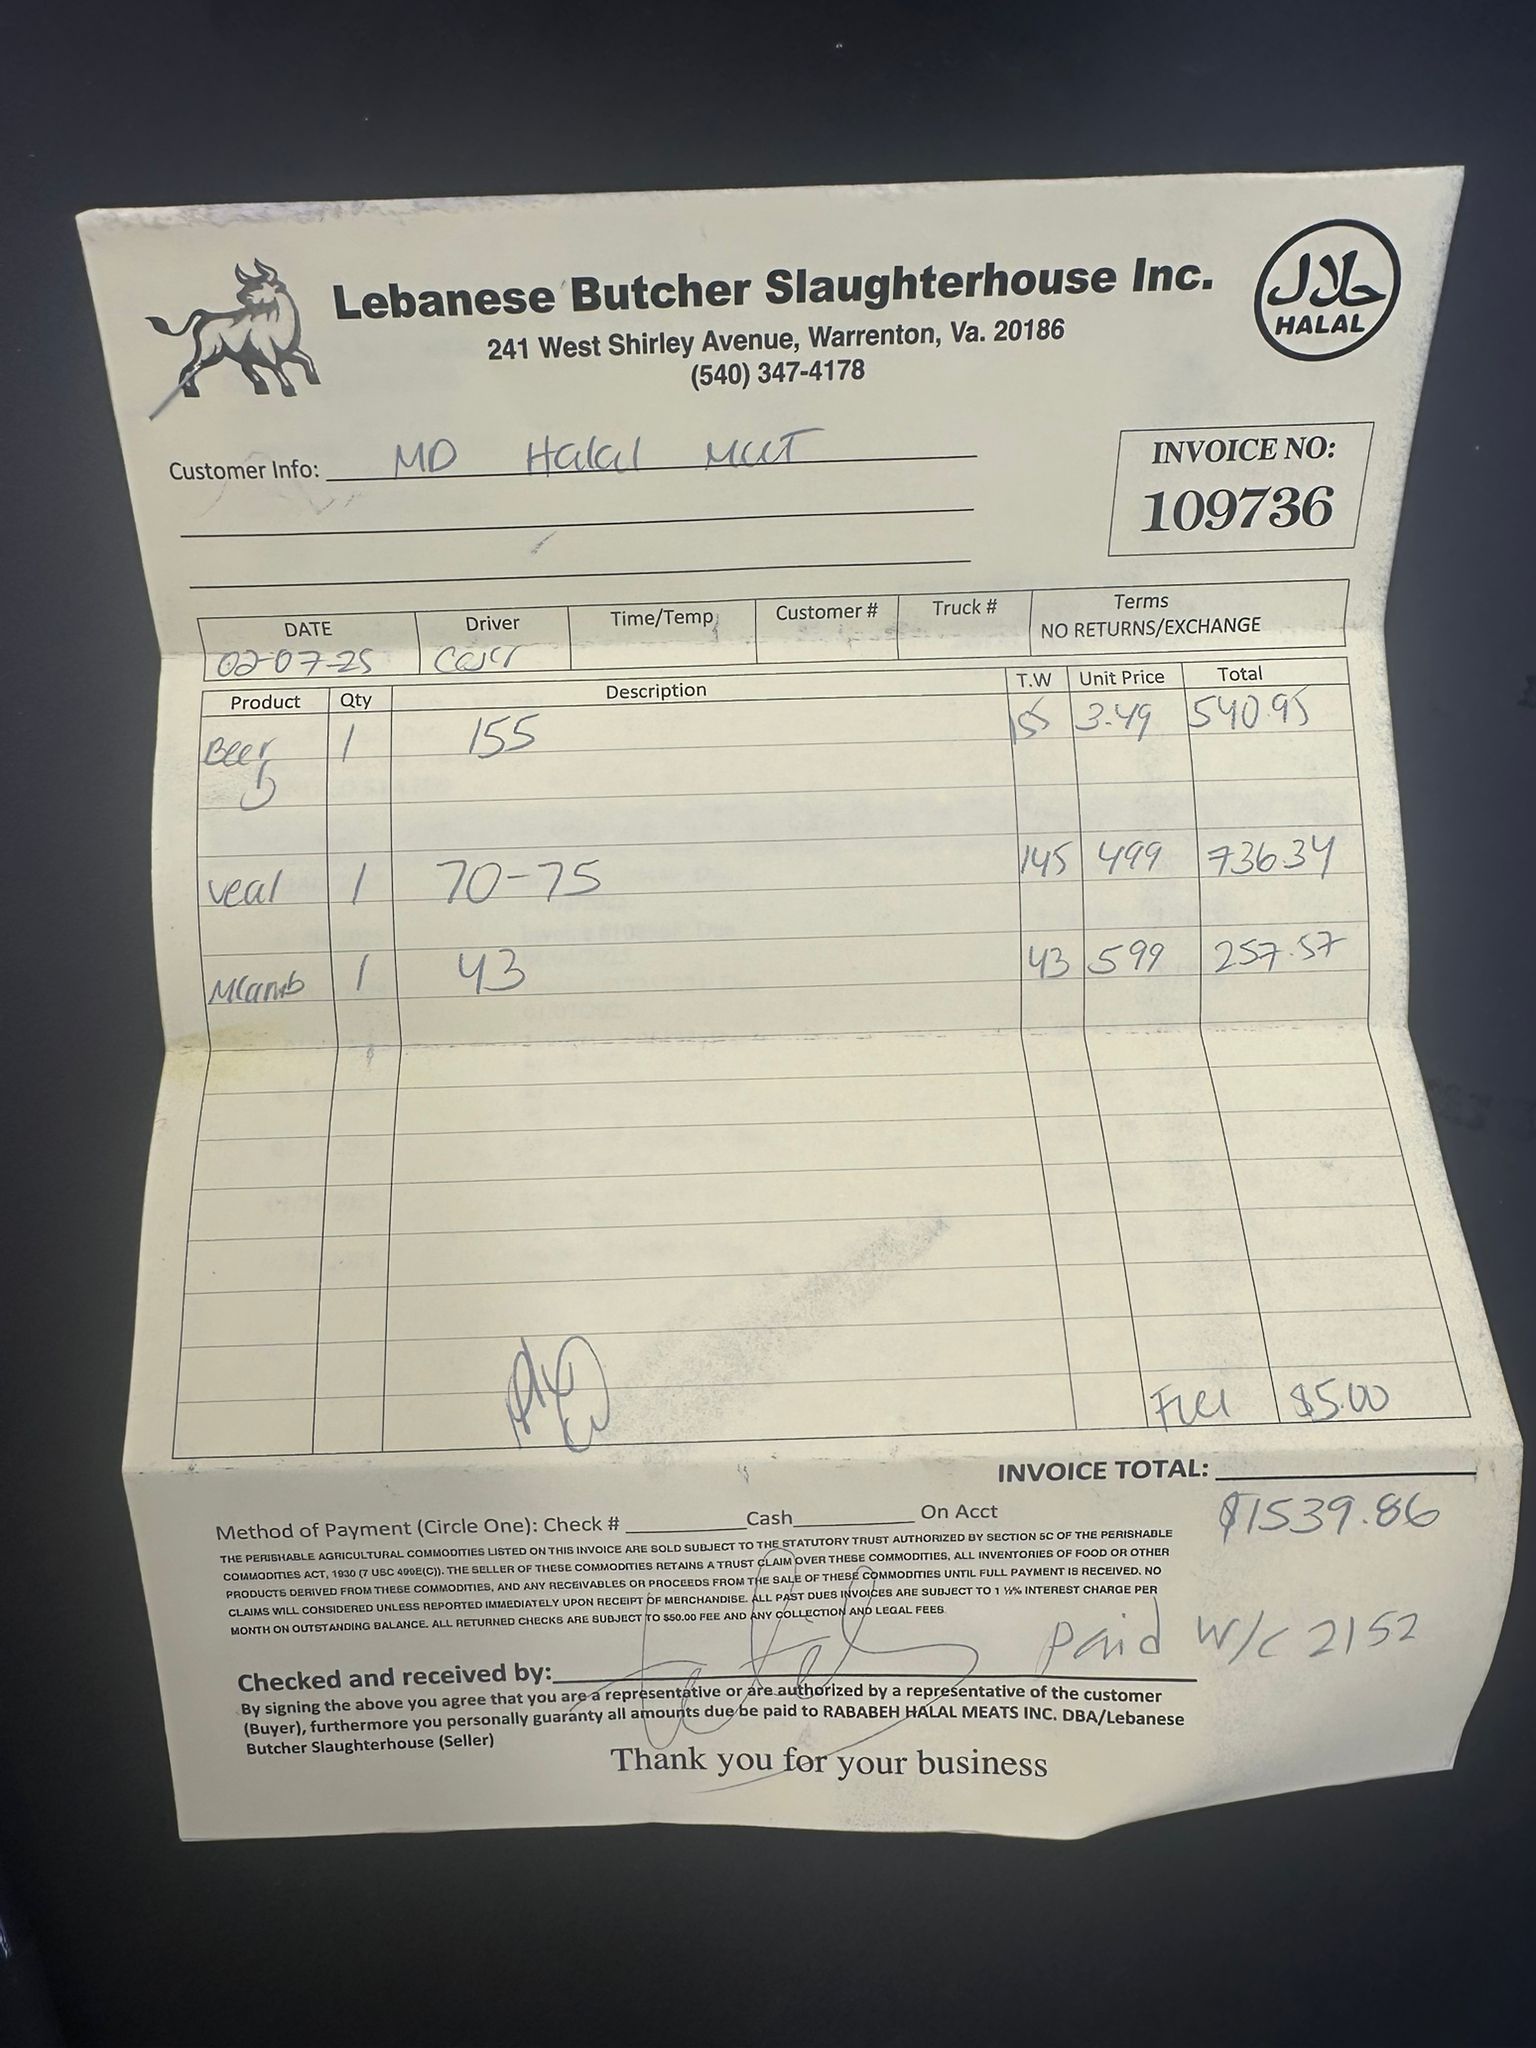 Lebanese Butcher Slaughterhouse Inc.
241 West Shirley Avenue, Warrenton, Va. 20186
(540) 347-4178
حلال
HALAL
Customer Info: MD Halal MeaT
INVOICE NO:
109736
DATE Driver Time/Temp Customer # Truck # Terms
NO RETURNS/EXCHANGE
02-07-25
Product Qty Description T.W Unit Price Total
Beef 1 155 155 3.49 540.95
veal 1 70-75 145 499 736.34
Mlamb 1 43 43 599 257.57
Fuel $5.00
INVOICE TOTAL:
$1539.86
Method of Payment (Circle One): Check # Cash On Acct
THE PERISHABLE AGRICULTURAL COMMODITIES LISTED ON THIS INVOICE ARE SOLD SUBJECT TO THE STATUTORY TRUST AUTHORIZED BY SECTION 5C OF THE PERISHABLE
COMMODITIES ACT, 1930 (7 USC 499E(C)). THE SELLER OF THESE COMMODITIES RETAINS A TRUST CLAIM OVER THESE COMMODITIES, ALL INVENTORIES OF FOOD OR OTHER
PRODUCTS DERIVED FROM THESE COMMODITIES, AND ANY RECEIVABLES OR PROCEEDS FROM THE SALE OF THESE COMMODITIES UNTIL FULL PAYMENT IS RECEIVED. NO
CLAIMS WILL CONSIDERED UNLESS REPORTED IMMEDIATELY UPON RECEIPT OF MERCHANDISE. ALL PAST DUES INVOICES ARE SUBJECT TO 1 ½% INTEREST CHARGE PER
MONTH ON OUTSTANDING BALANCE. ALL RETURNED CHECKS ARE SUBJECT TO $50.00 FEE AND ANY COLLECTION AND LEGAL FEES
Paid W/C 2152
Checked and received by:
By signing the above you agree that you are a representative or are authorized by a representative of the customer
(Buyer), furthermore you personally guaranty all amounts due be paid to RABABEH HALAL MEATS INC. DBA/Lebanese
Butcher Slaughterhouse (Seller)
Thank you for your business